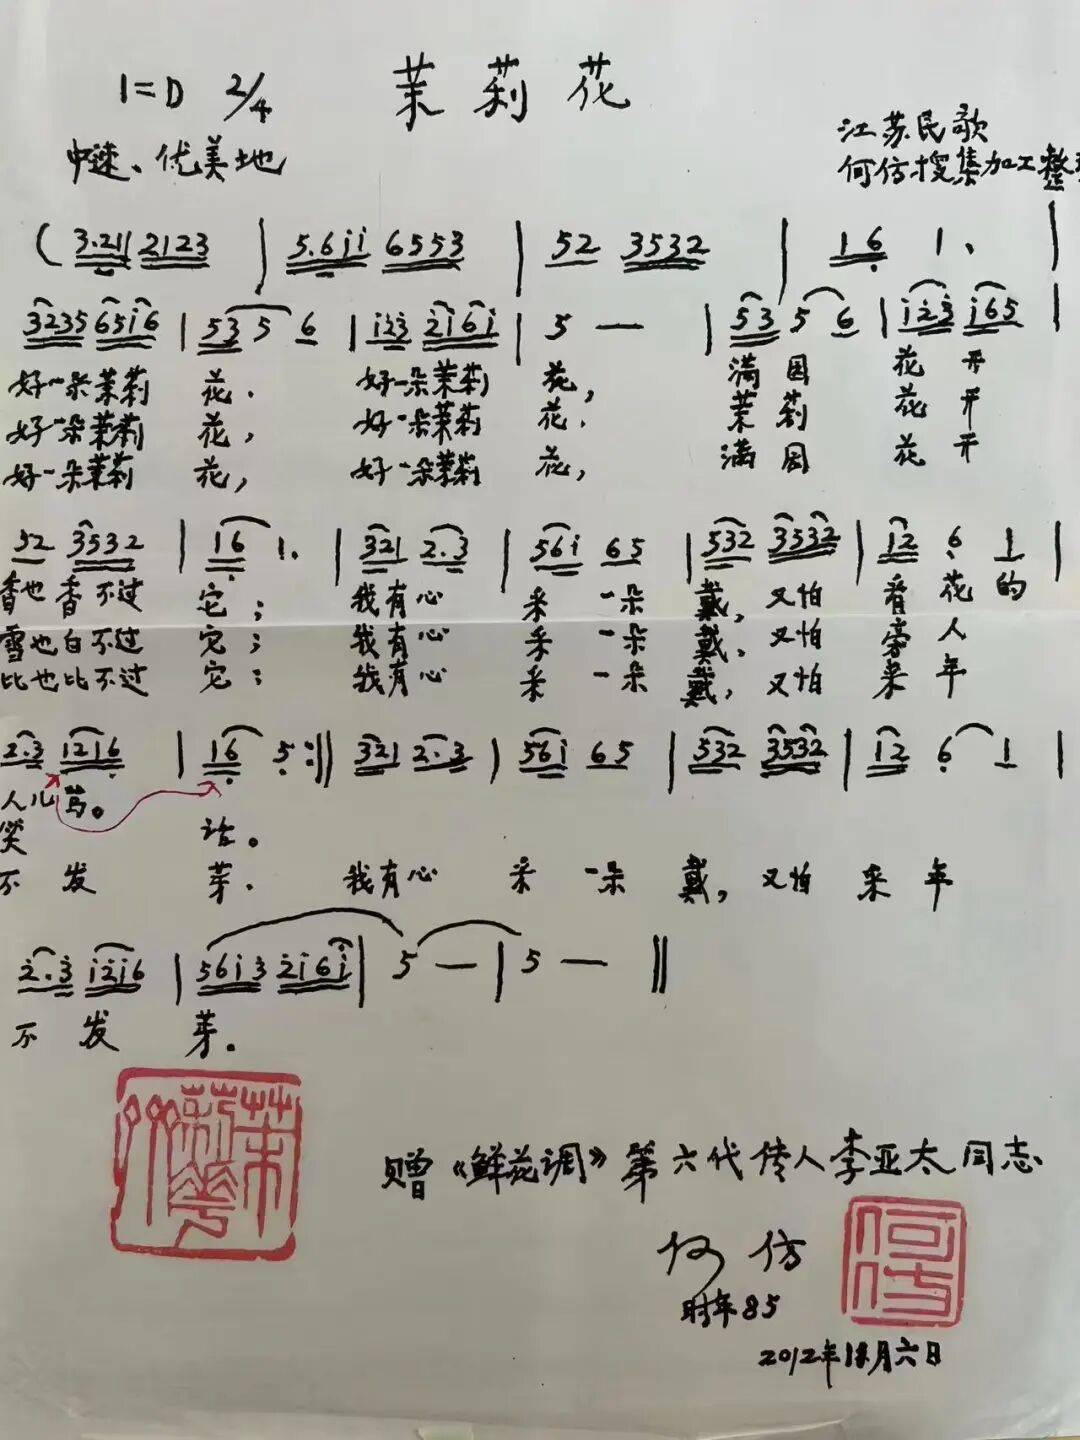 1=D 2/4 茉莉花
中速、优美地
江苏民歌
何仿搜集加工整
( 3.211 2123 | 5.6i i 6553 | 52 3532 | 16 1. |
3235 65i6 | 53 5 6 | i23 2i6i | 5 — | 53 5 6 | i23 i65 |
好一朵茉莉 花. 好一朵茉莉 花, 满园 花开
好一朵茉莉 花, 好一朵茉莉 花. 茉莉 花开
好一朵茉莉 花, 好一朵茉莉 花, 满园 花开
52 3532 | 16 1. | 321 2.3 | 56i 65 | 532 3532 | 12 6 1 |
香也香不过 它; 我有心 采一朵 戴, 又怕 看花的
雪也白不过 它; 我有心 采一朵 戴, 又怕 旁人
比也比不过 它; 我有心 采一朵 戴, 又怕 来年
2.3 1216 | 16 5 :‖ 321 2.3 | 56i 65 | 532 3532 | 12 6 1 |
人儿骂。
笑 话。
不发 芽. 我有心 采一朵 戴, 又怕 来年
2.3 i2i6 | 56i3 2i6i | 5 — | 5 — ‖
不发 芽。
茉莉花
赠《鲜花调》第六代传人李亚太同志
何仿
何仿
时年85
2012年 月六日